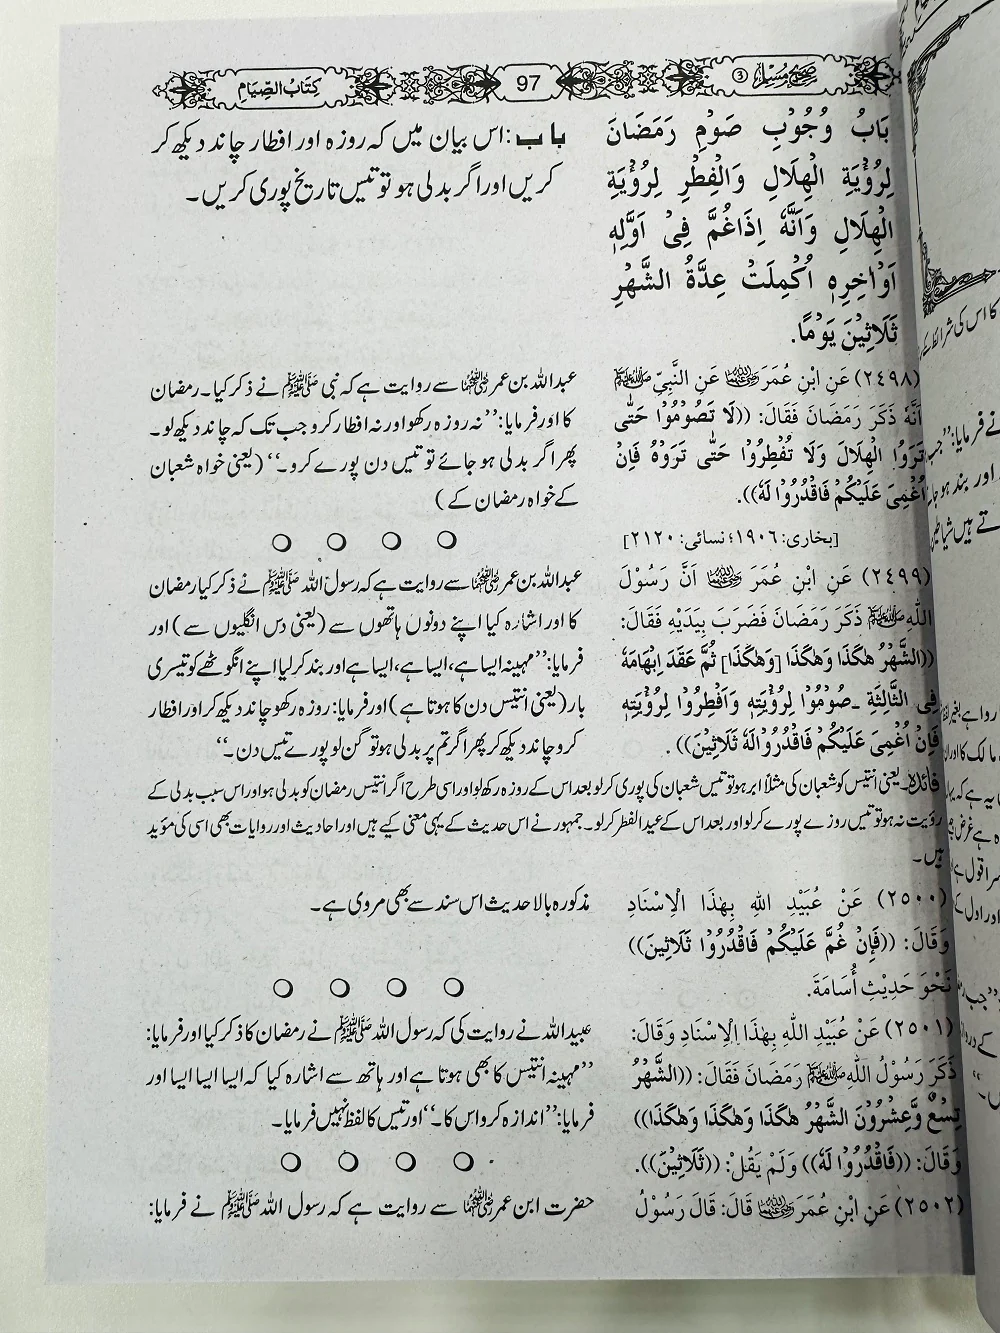 صحیح مسلم ③
97
کِتَابُ الصِّیَامِ
بَابُ وُجُوْبِ صَوْمِ رَمَضَانَ
لِرُؤْيَةِ الْهِلَالِ وَالْفِطْرِ لِرُؤْيَةِ
الْهِلَالِ وَاَنَّهُ اِذَاغُمَّ فِىْ اَوَّلِهٖ
اَوْاٰخِرِهٖ اُكْمِلَتْ عِدَّةُ الشَّهْرِ
ثَلَاثِيْنَ يَوْمًا.
باب: اس بیان میں کہ روزہ اور افطار چاند دیکھ کر
کریں اور اگر بدلی ہو تو تیس تاریخ پوری کریں۔
(٢٤٩٨) عَنِ ابْنِ عُمَرَ رضی اللہ عنہما عَنِ النَّبِيِّ ﷺ
أَنَّهُ ذَكَرَ رَمَضَانَ فَقَالَ: ((لَا تَصُوْمُوْا حَتّٰى
تَرَوُا الْهِلَالَ وَلَا تُفْطِرُوْا حَتّٰى تَرَوْهُ فَاِنْ
اُغْمِيَ عَلَيْكُمْ فَاقْدُرُوْا لَهُ)).
[بخاری: ١٩٠٦؛ نسائی: ٢١٢٠]
عبداللہ بن عمر رضی اللہ عنہما سے روایت ہے کہ نبی ﷺ نے ذکر کیا۔ رمضان
کا اور فرمایا: ’’نہ روزہ رکھو اور نہ افطار کرو جب تک کہ چاند دیکھ لو۔
پھر اگر بدلی ہو جائے تو تیس دن پورے کرو۔‘‘ (یعنی خواہ شعبان
کے خواہ رمضان کے)
(٢٤٩٩) عَنِ ابْنِ عُمَرَ رضی اللہ عنہما اَنَّ رَسُوْلَ
اللّٰهِ ﷺ ذَكَرَ رَمَضَانَ فَضَرَبَ بِيَدَيْهِ فَقَالَ:
((الشَّهْرُ هٰكَذَا وَهٰكَذَا [وَهٰكَذَا] ثُمَّ عَقَدَ اِبْهَامَهُ
فِى الثَّالِثَةِ ۔ صُوْمُوْا لِرُؤْيَتِهٖ وَاَفْطِرُوْا لِرُؤْيَتِهٖ
فَاِنْ اُغْمِيَ عَلَيْكُمْ فَاقْدُرُوْا لَهُ ثَلَاثِيْنَ)).
عبداللہ بن عمر رضی اللہ عنہما سے روایت ہے کہ رسول اللہ ﷺ نے ذکر کیا رمضان
کا اور اشارہ کیا اپنے دونوں ہاتھوں سے (یعنی دس انگلیوں سے) اور
فرمایا: ’’مہینہ ایسا ہے، ایسا ہے، ایسا ہے اور بند کر لیا اپنے انگوٹھے کو تیسری
بار (یعنی انتیس دن کا ہوتا ہے) اور فرمایا: روزہ رکھو چاند دیکھ کر اور افطار
کرو چاند دیکھ کر پھر اگر تم پر بدلی ہو تو گن لو پورے تیس دن۔‘‘
فائدہ۔ یعنی انتیس کو شعبان کی مثلاً ابر ہو تو تیس شعبان کی پوری کر لو بعد اس کے روزہ رکھ لو اور اسی طرح اگر انتیس رمضان کو بدلی ہو اور اس سبب بدلی کے
رؤیت نہ ہو تو تیس روزے پورے کر لو اور بعد اس کے عید الفطر کر لو۔ جمہور نے اس حدیث کے یہی معنی کیے ہیں اور احادیث اور روایات بھی اسی کی مؤید
ہیں۔
(٢٥٠٠) عَنْ عُبَيْدِ اللّٰهِ بِهٰذَا الْاِسْنَادِ
وَقَالَ: ((فَإِنْ غُمَّ عَلَيْكُمْ فَاقْدُرُوْا ثَلَاثِيْنَ))
نَحْوَ حَدِيْثِ أُسَامَةَ.
مذکورہ بالا حدیث اس سند سے بھی مروی ہے۔
(٢٥٠١) عَنْ عُبَيْدِ اللّٰهِ بِهٰذَا الْاِسْنَادِ وَقَالَ:
ذَكَرَ رَسُوْلُ اللّٰهِ ﷺ رَمَضَانَ فَقَالَ: ((الشَّهْرُ
تِسْعٌ وَّعِشْرُوْنَ الشَّهْرُ هٰكَذَا وَهٰكَذَا وَهٰكَذَا))
وَقَالَ: ((فَاقْدُرُوْا لَهُ)) وَلَمْ يَقُلْ: ((ثَلَاثِيْنَ)).
عبیداللہ نے روایت کی کہ رسول اللہ ﷺ نے رمضان کا ذکر کیا اور فرمایا:
’’مہینہ انتیس کا بھی ہوتا ہے اور ہاتھ سے اشارہ کیا کہ ایسا ایسا ایسا اور
فرمایا: ’’اندازہ کرو اس کا۔‘‘ اور تیس کا لفظ نہیں فرمایا۔
(٢٥٠٢) عَنِ ابْنِ عُمَرَ رضی اللہ عنہما قَالَ: قَالَ رَسُوْلُ
حضرت ابن عمر رضی اللہ عنہما سے روایت ہے کہ رسول اللہ ﷺ نے فرمایا: